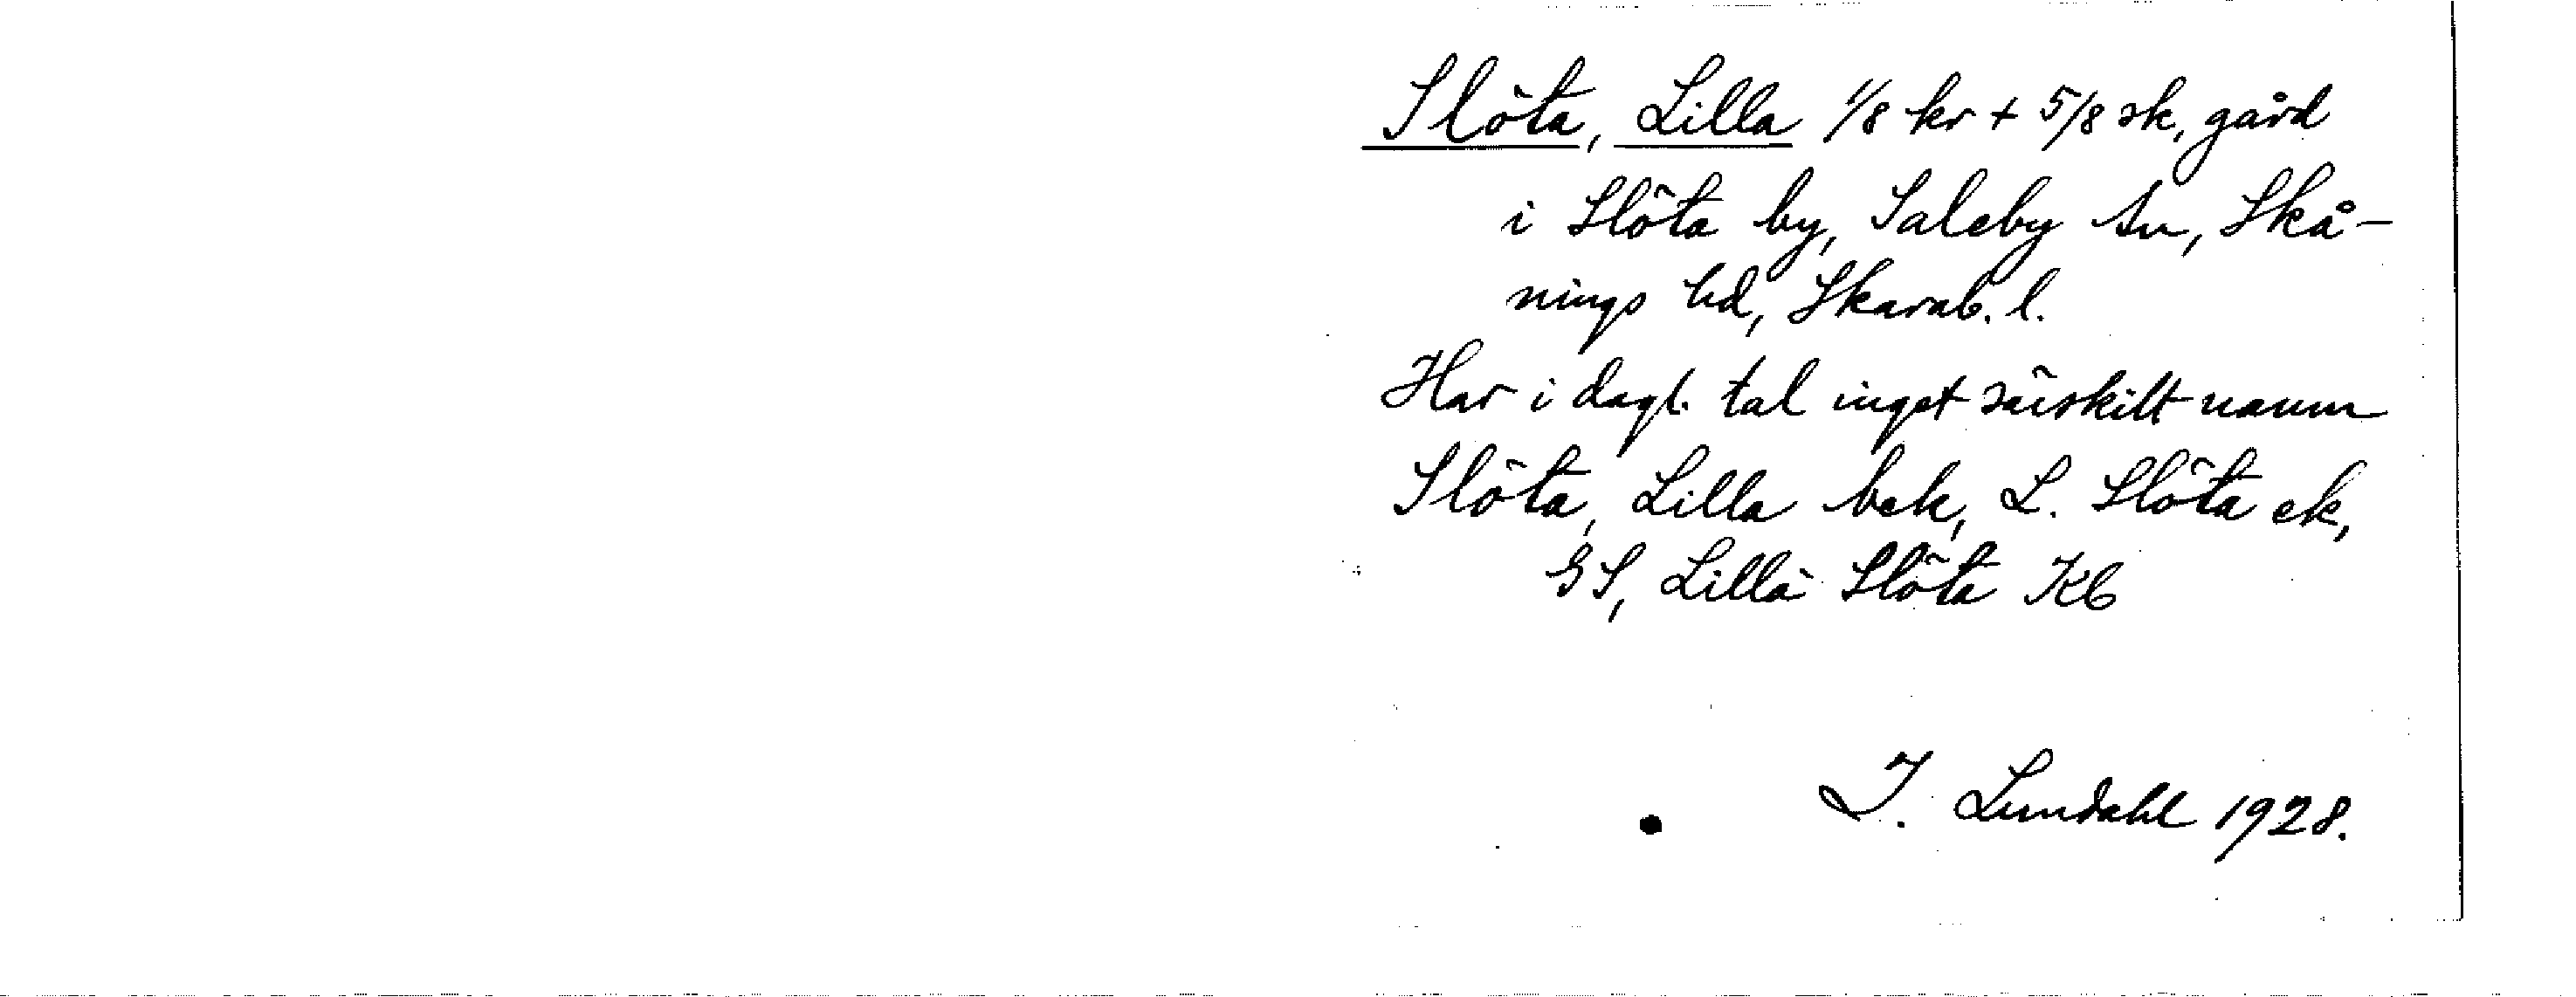 Slöta, Lilla 1/8 kr + 5/8 sk, gård
i Slöta by, Saleby sn, Skå-
nings hd, Skarab. l.
Har i dagl. tal inget särskilt namn
Slöta, Lilla bek, L. Slöta ek,
GS, Lilla Slöta Kb
I. Lundahl 1928.